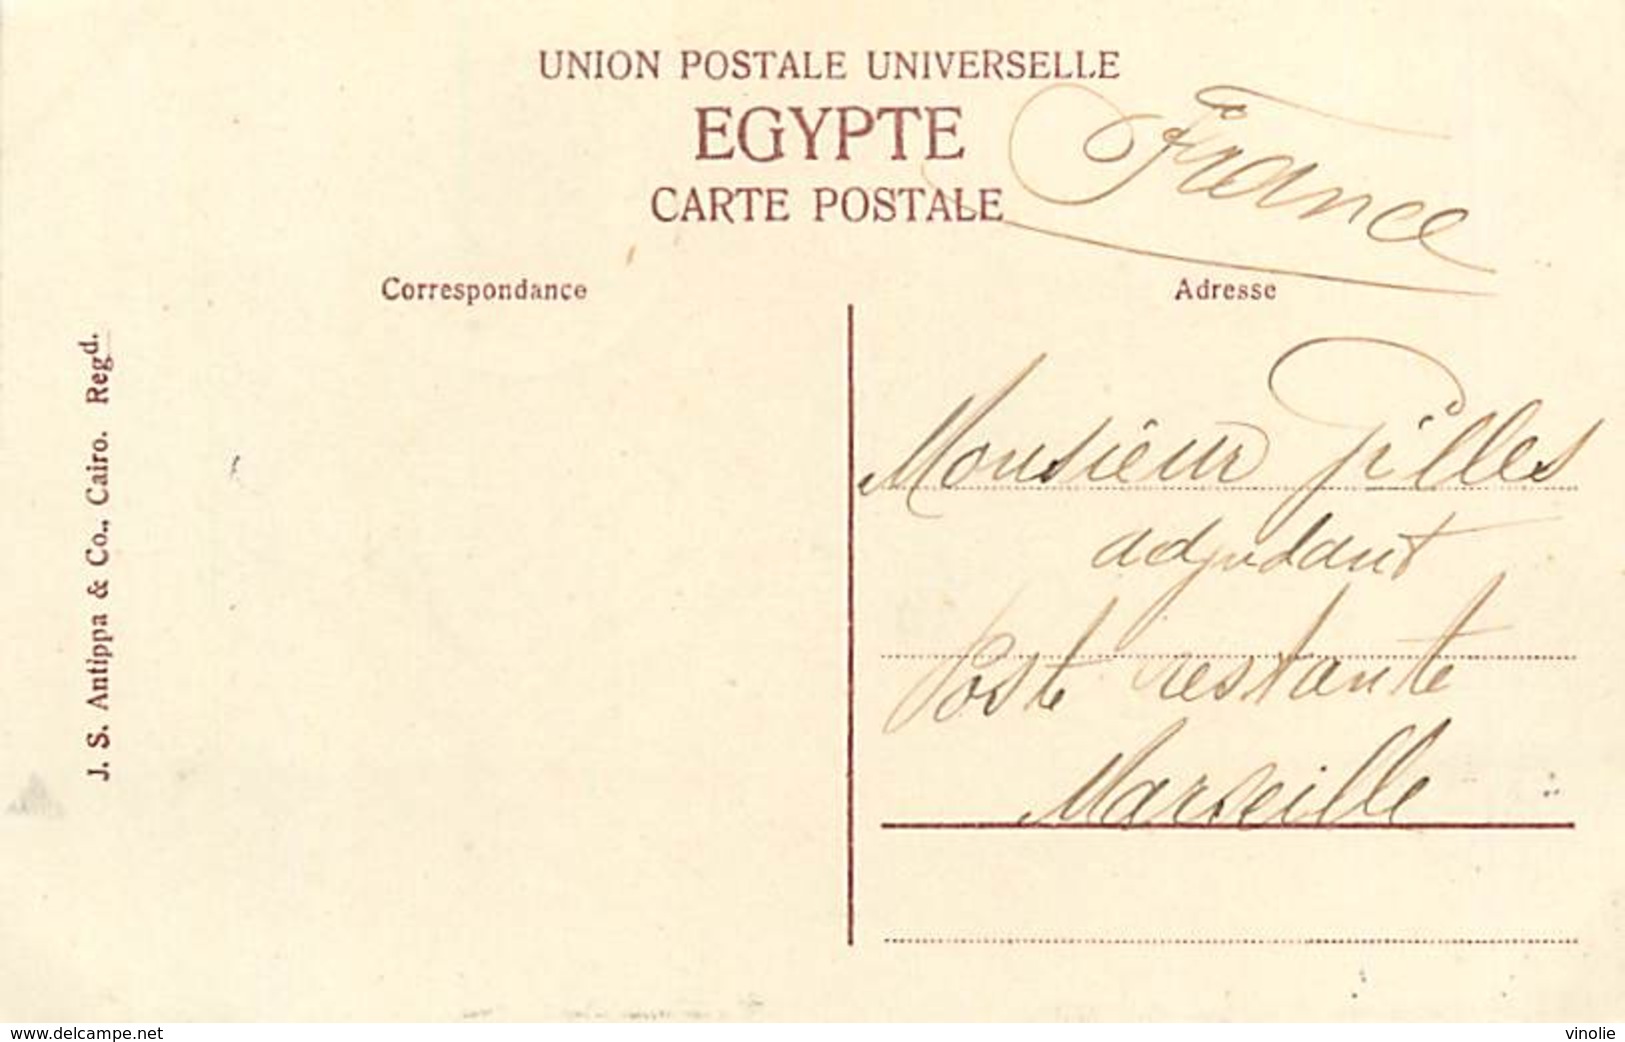 UNION POSTALE UNIVERSELLE
EGYPTE
CARTE POSTALE
France
Correspondance
Adresse
J. S. Antippa & Co., Cairo. Regd.
Monsieur Gilles
adjudant
Poste restante
Marseille
www.delcampe.net
vinolie